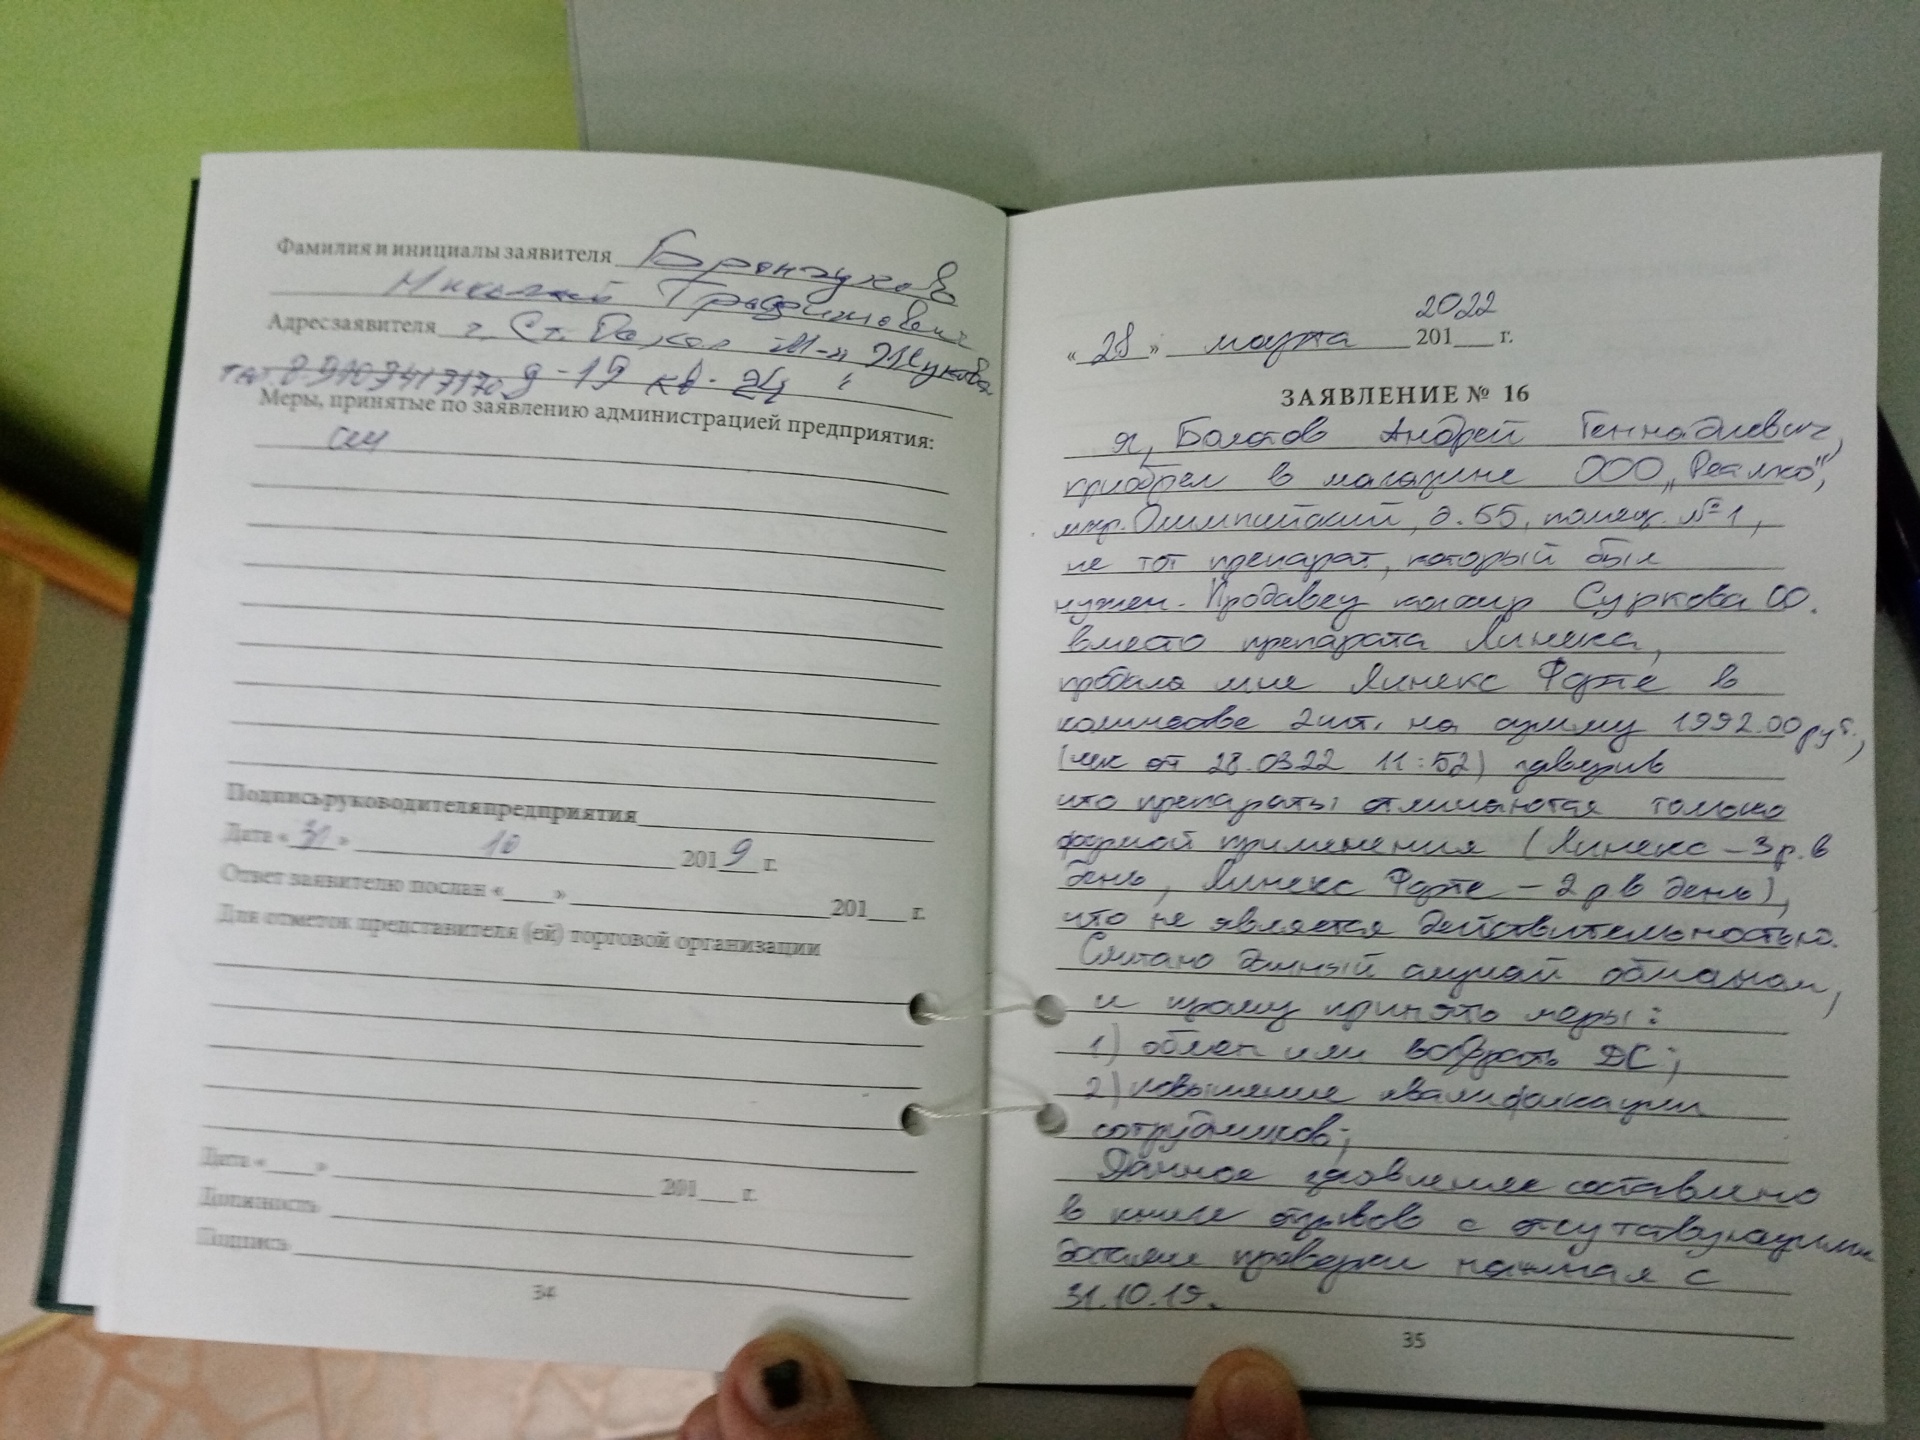 Фамилия и инициалы заявителя
Николай
Адрес заявителя г. Ст. Оскол м-н Жукова
тел. 89103417170 д-19 кв. 24
Меры, принятые по заявлению администрацией предприятия:
Подпись руководителя предприятия
Дата «31» 10 2019 г.
Ответ заявителю послан «___» 201__ г.
Для отметок представителя (ей) торговой организации
Дата «___» 201__ г.
Должность
Подпись
34
2022
«28» марта 201__ г.
ЗАЯВЛЕНИЕ № 16
Я, Болотов Андрей Геннадиевич,
приобрел в магазине ООО „Реалко",
мкр. Олимпийский, д. 55, помещ. №1,
не тот препарат, который был
нужен. Продавец кассир Суркова ОО.
вместо препарата Линекса,
продала мне Линекс Форте в
количестве 2шт. на сумму 1992.00 руб.,
(чек от 28.03.22 11:52) заверив
что препараты отличаются только
формой применения (Линекс – 3 р. в
день, Линекс Форте – 2 р в день),
что не является действительностью.
Считаю данный случай обманом,
и прошу принять меры:
1) обмен или возврат ДС;
2) повышение квалификации
сотрудников;
Данное заявление составлено
в книге отзывов с отсутствующими
датами проверки начиная с
31.10.19.
35